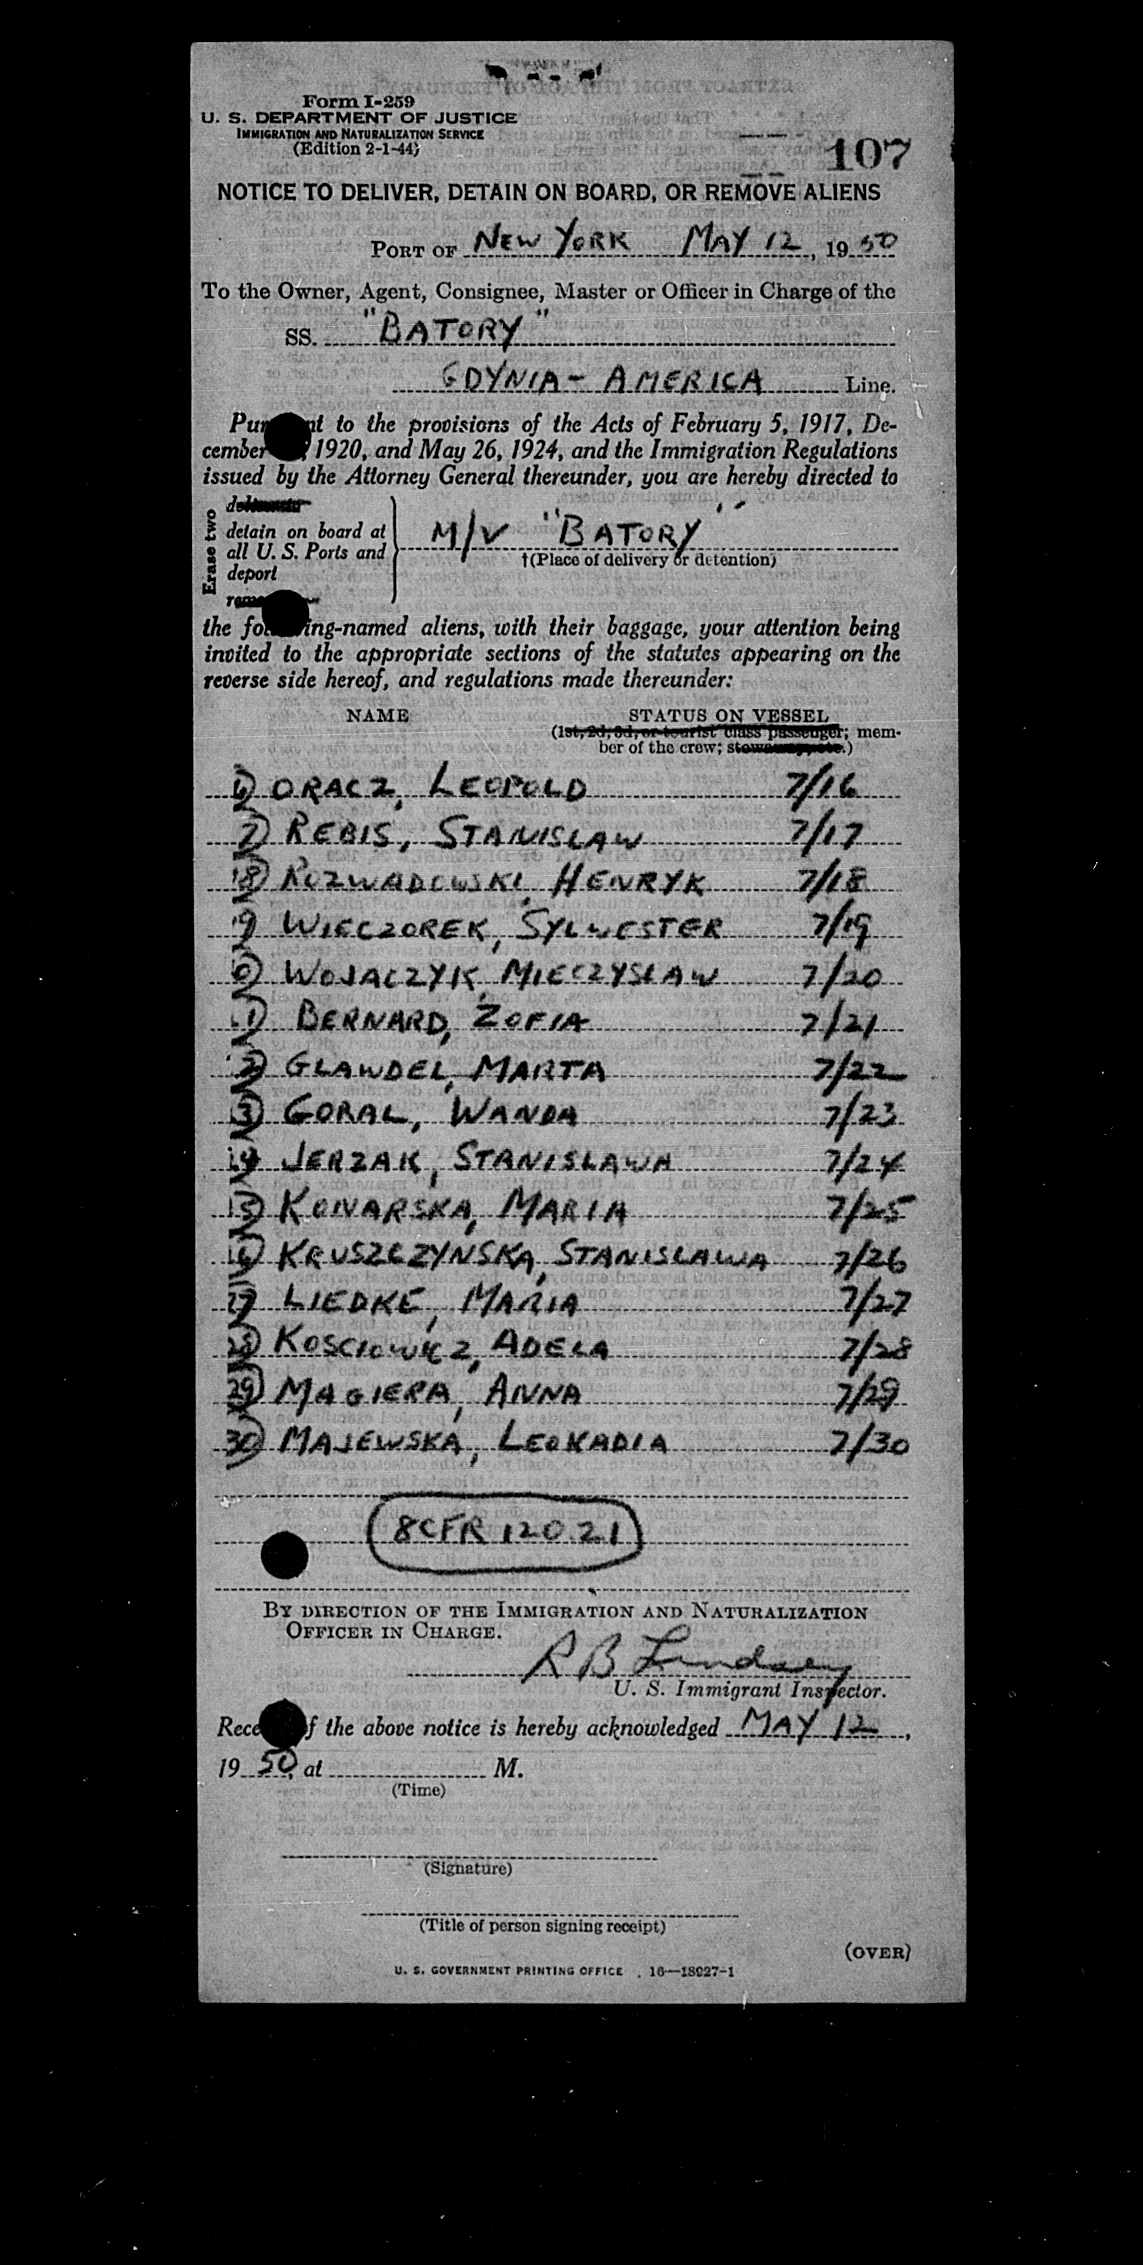 Form I-259
U. S. DEPARTMENT OF JUSTICE
IMMIGRATION AND NATURALIZATION SERVICE
(Edition 2-1-44)
107
NOTICE TO DELIVER, DETAIN ON BOARD, OR REMOVE ALIENS
PORT OF NEW YORK MAY 12, 1950
To the Owner, Agent, Consignee, Master or Officer in Charge of the
SS. "BATORY"
GDYNIA - AMERICA Line.
to the provisions of the Acts of February 5, 1917, De-
cember 1920, and May 26, 1924, and the Immigration Regulations
issued by the Attorney General thereunder, you are hereby directed to
Erase two
detain on board at
all U. S. Ports and
deport
M/V "BATORY"
†(Place of delivery or detention)
the -named aliens, with their baggage, your attention being
invited to the appropriate sections of the statutes appearing on the
reverse side hereof, and regulations made thereunder:
NAME STATUS ON VESSEL
(1st, 2d, 3d, or tourist class passenger; mem-
ber of the crew; .)
6) ORACZ, LEOPOLD 7/16
7) REBIS, STANISLAW 7/17
18) ROZWADOWSKI, HENRYK 7/18
9 WIECZOREK, SYLWESTER 7/19
0) WOJACZYK, MIECZYSLAW 7/20
1) BERNARD, ZOFIA 7/21
2) GLAWDEL, MARTA 7/22
3) GORAL, WANDA 7/23
4 JERZAK, STANISLAWA 7/24
5) KONARSKA, MARIA 7/25
6) KRUSZCZYNSKA, STANISLAWA 7/26
27) LIEDKE, MARIA 7/27
28) KOSCIOWICZ, ADELA 7/28
29) MAGIERA, ANNA 7/29
30) MAJEWSKA, LEOKADIA 7/30
8CFR 120.21
BY DIRECTION OF THE IMMIGRATION AND NATURALIZATION
OFFICER IN CHARGE.
R B Lindsey
U. S. Immigrant Inspector.
the above notice is hereby acknowledged MAY 12,
1950, at M.
(Time)
(Signature)
(Title of person signing receipt)
(OVER)
U. S. GOVERNMENT PRINTING OFFICE 16—18027-1